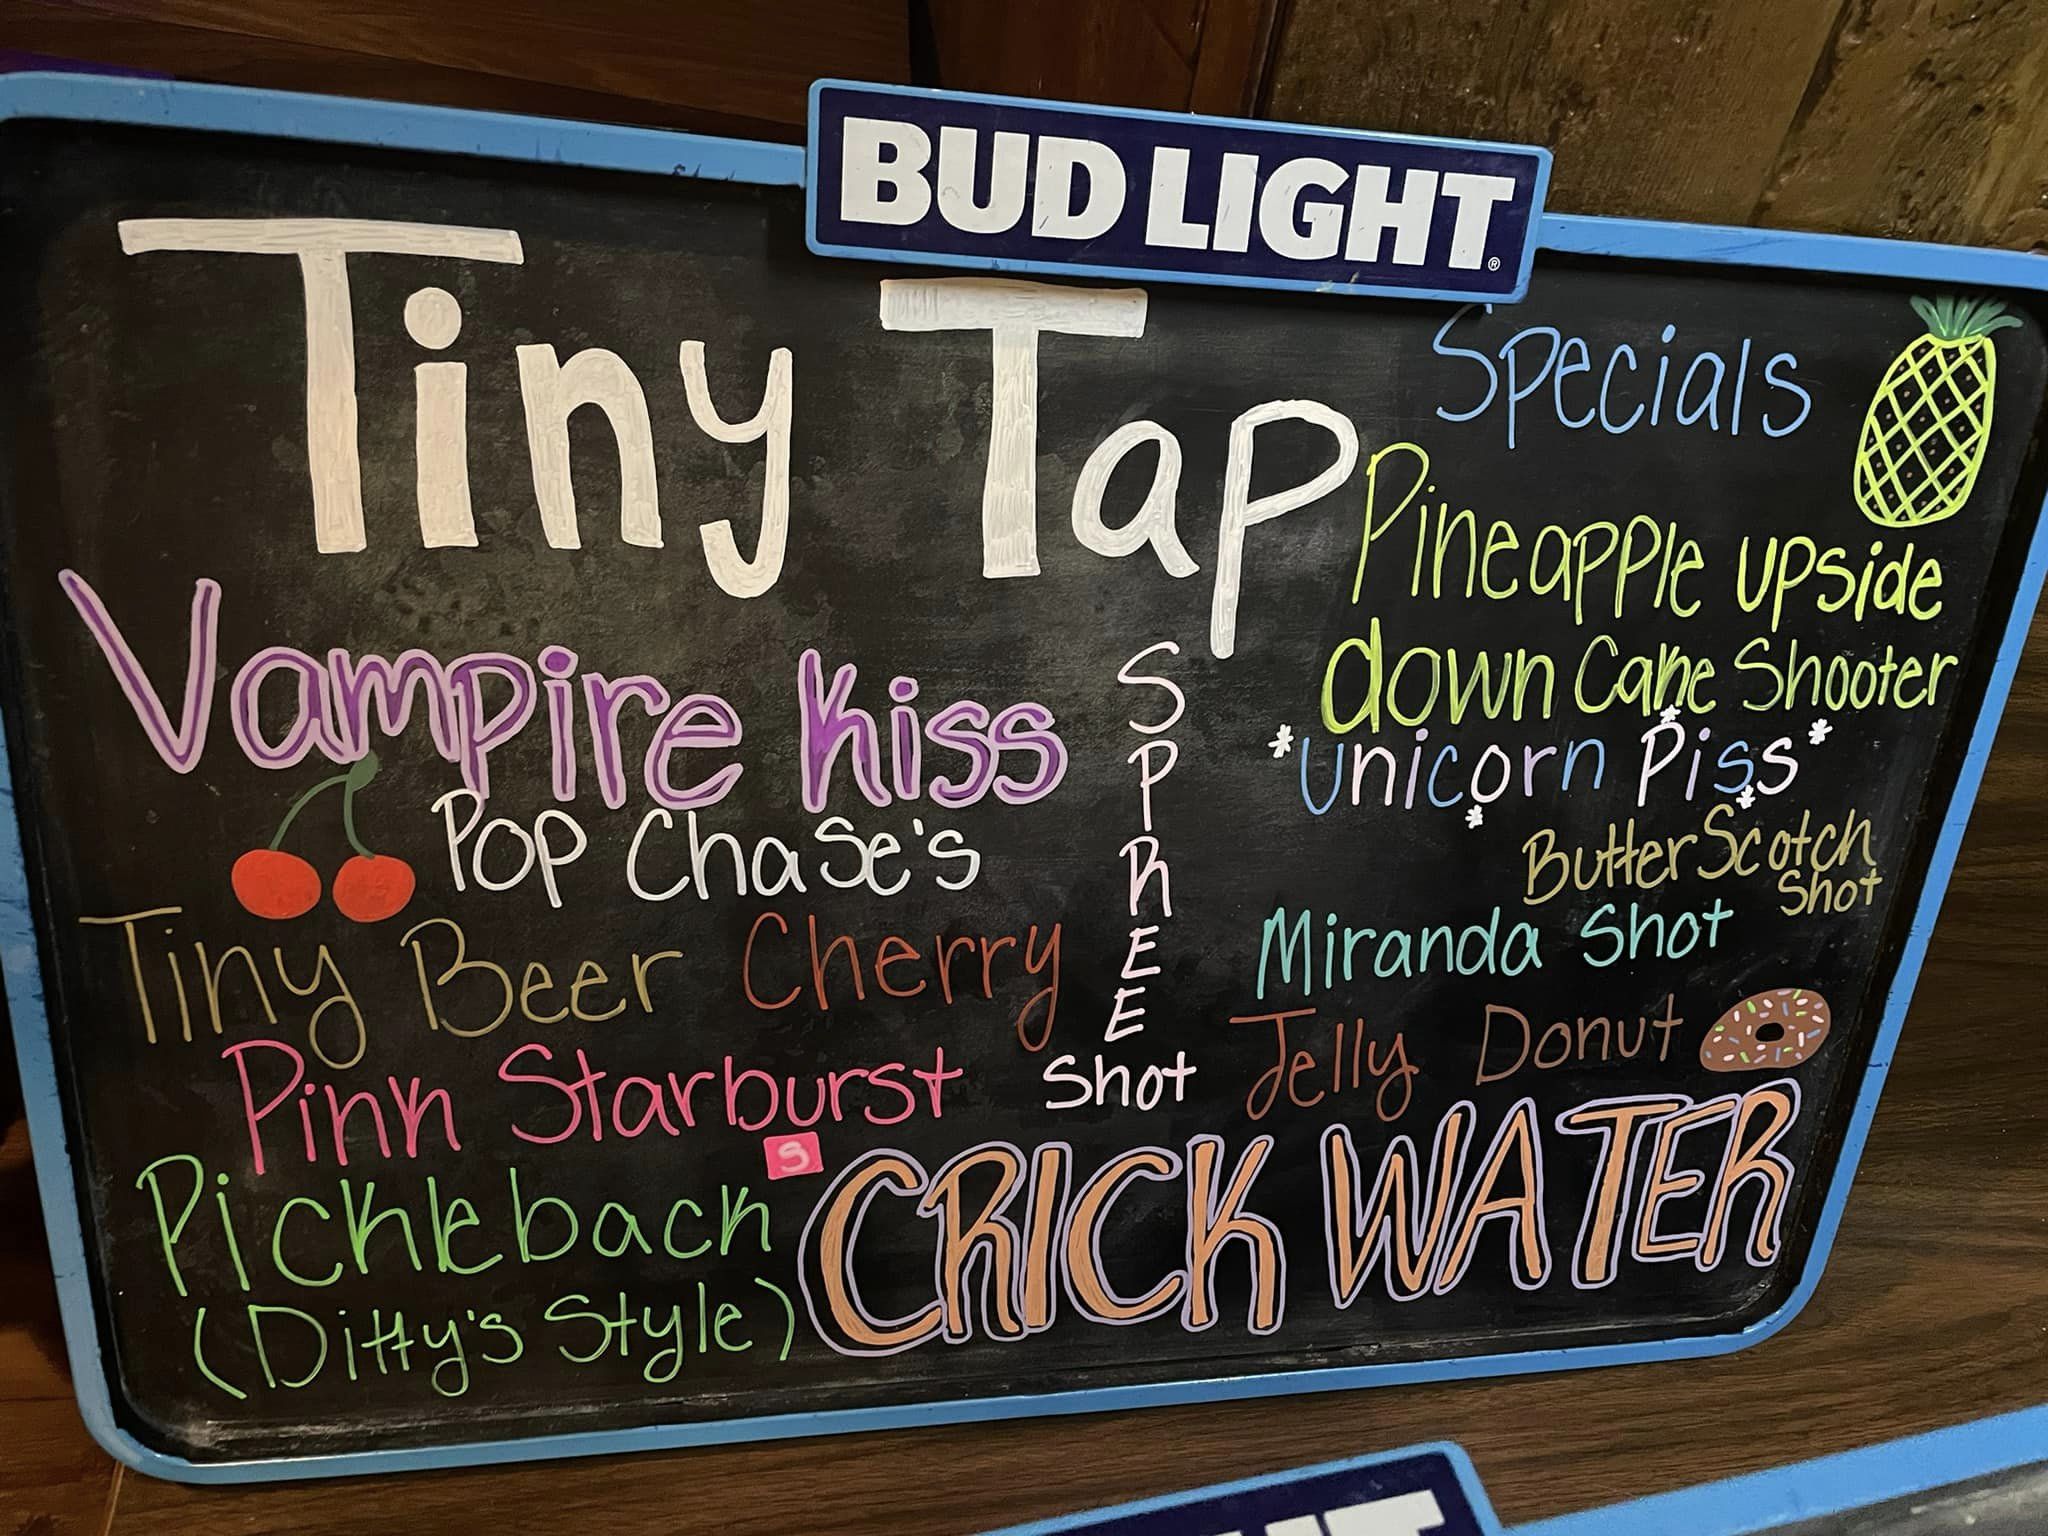 BUD LIGHT®
Tiny Tap
Specials
Vampire Kiss
Pop Chase's
Tiny Beer Cherry
Pink Starburst
S
Pickleback
(Ditty's Style)
SPREE
Shot
Pineapple upside
down Cake Shooter
*unicorn Piss*
ButterScotch
Shot
Miranda Shot
Jelly Donut
CRICK WATER